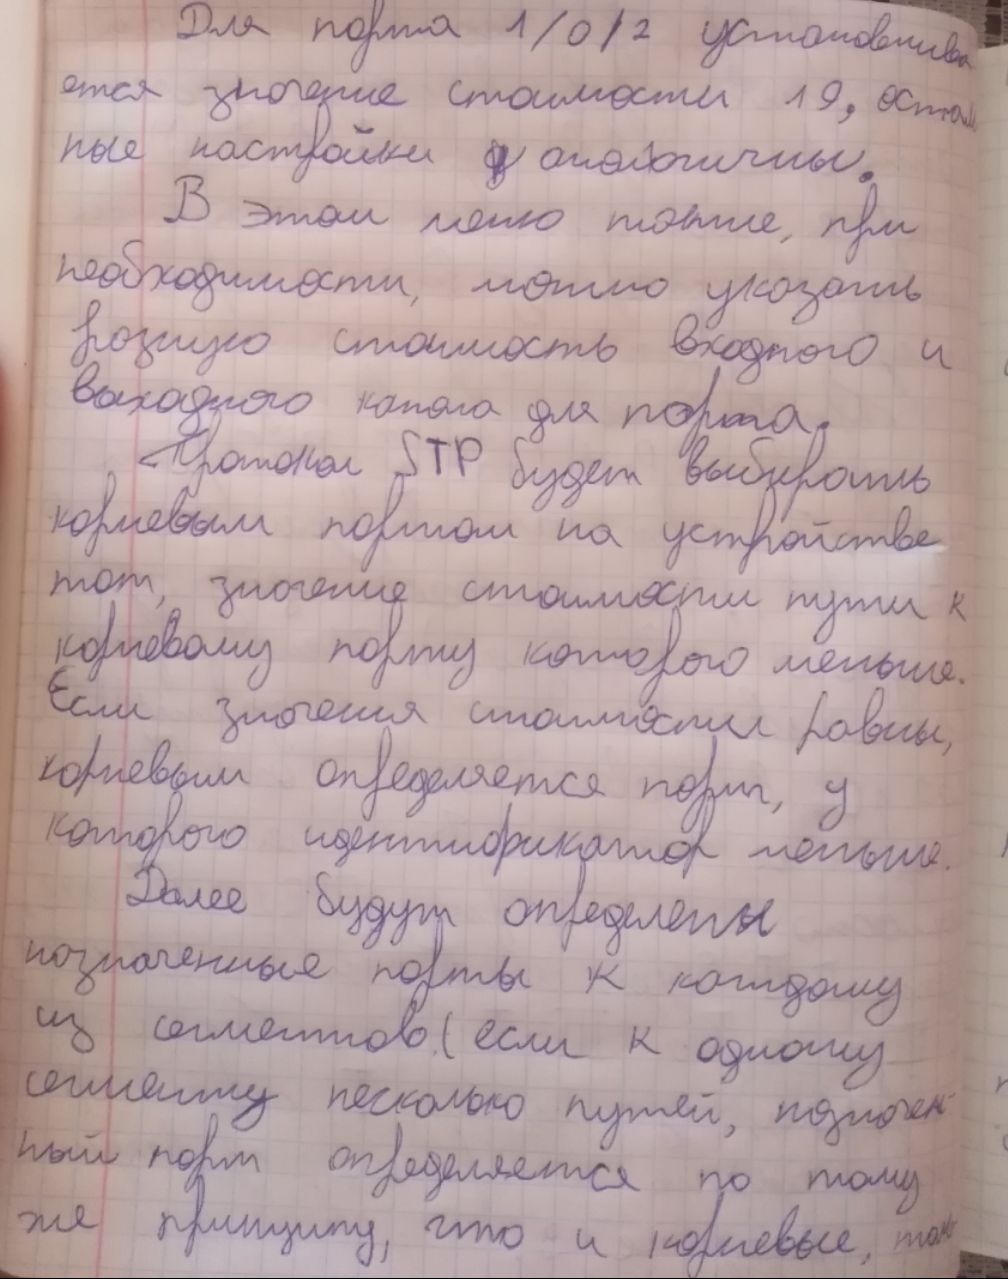 Для порта 1/0/2 устанавлива
ется значение стоимости 19, осталь
ные настройки аналогичны.
В этом меню также, при
необходимости, можно указать
разную стоимость входного и
выходного канала для порта.
Протокол STP будет выбирать
корневым портом на устройстве
тот, значение стоимости пути к
корневому порту которого меньше.
Если значения стоимости равны,
корневым определяется порт, у
которого идентификатор меньше.
Далее будут определены
назначенные порты к каждому
из сегментов. (если к одному
сегменту несколько путей, назначен-
ный порт определяется по тому
же принципу, что и корневые, так